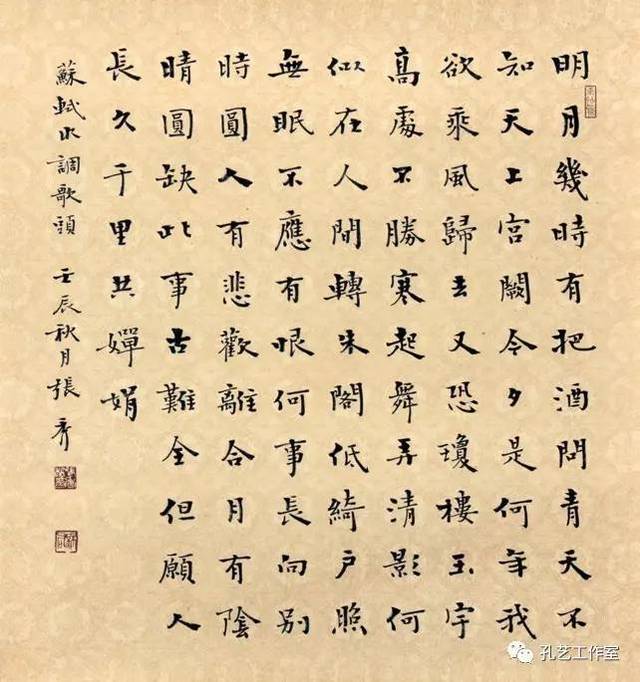 明月幾時有把酒問青天不
知天上宮闕今夕是何年我
欲乘風歸去又恐瓊樓玉宇
髙處不勝寒起舞弄清影何
似在人間轉朱閣低綺戶照
無眠不應有恨何事長向别
時圓人有悲歡離合月有陰
晴圓缺此事古難全但願人
長久千里共嬋娟
蘇軾水調歌頭 壬辰秋月張
孔艺工作室